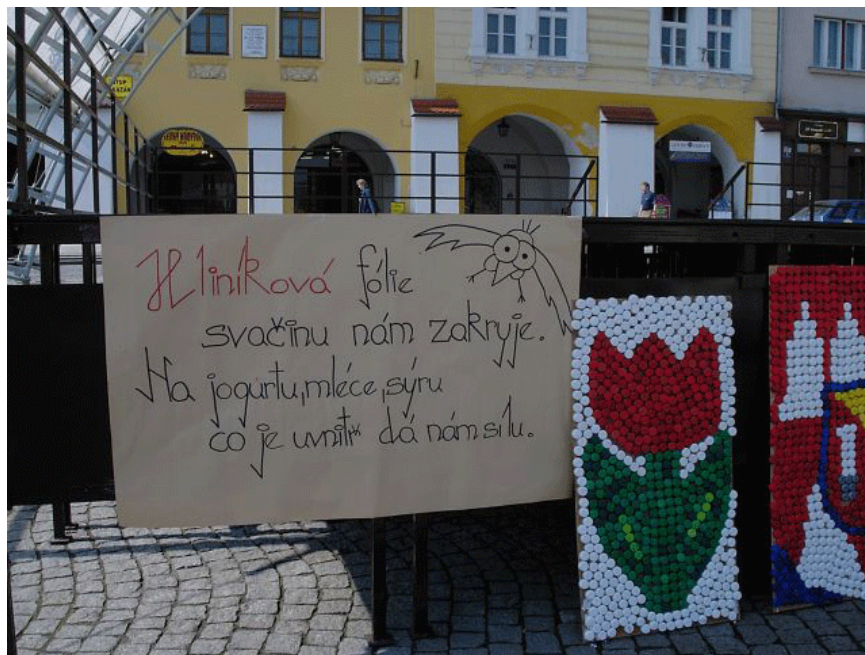 Hliníková fólie
svačinu nám zakryje.
Na jogurtu, mléce, sýru
co je uvnitř dá nám sílu.